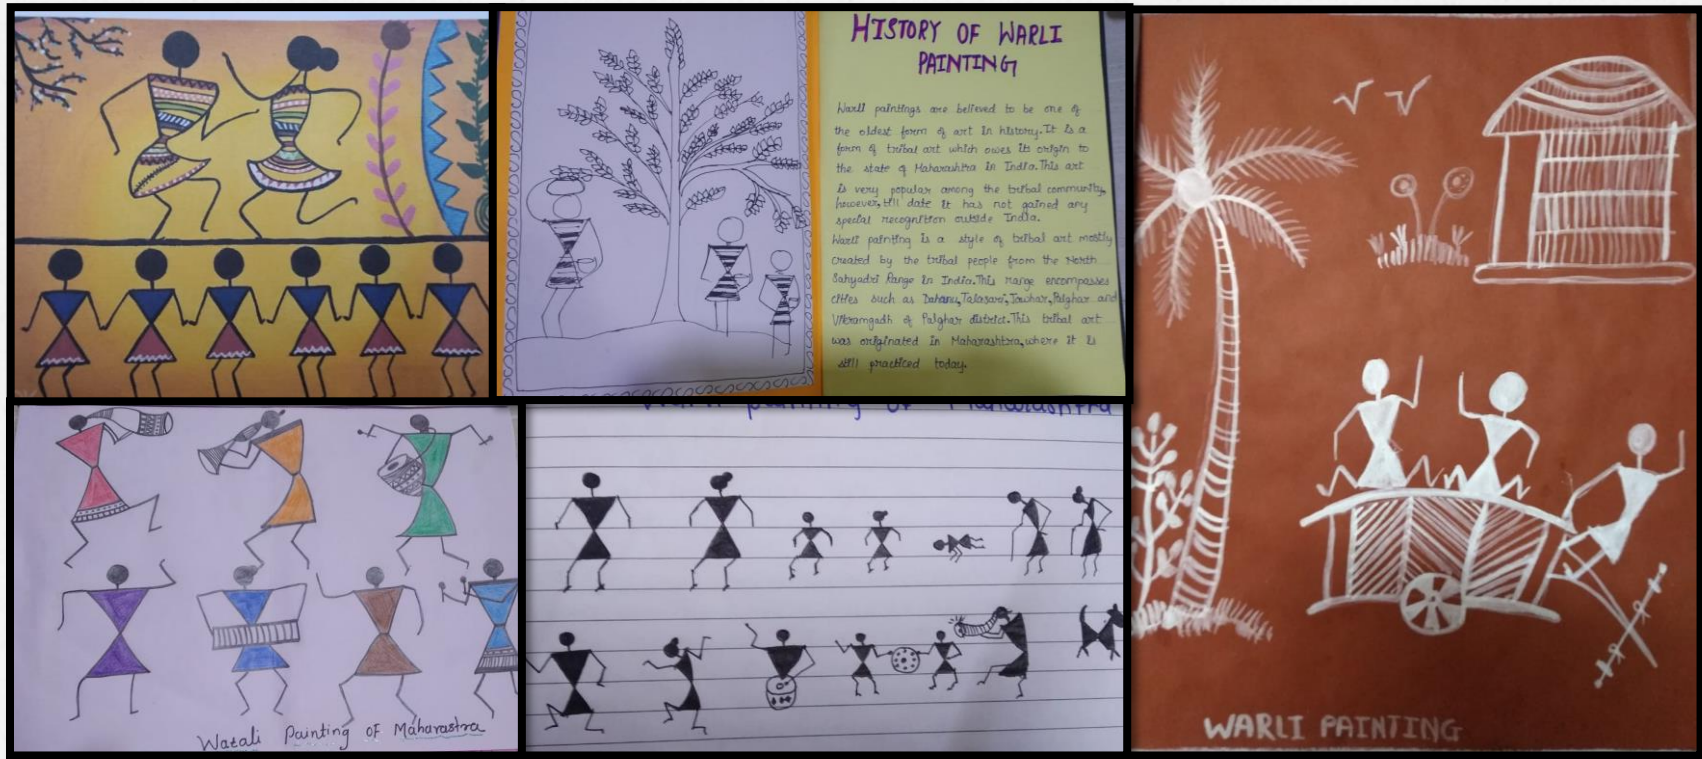 HISTORY OF WARLI
PAINTING
Warli paintings are believed to be one of
the oldest form of art in history. It is a
form of tribal art which owes its origin to
the state of Maharashtra in India. This art
is very popular among the tribal community,
however, till date it has not gained any
special recognition outside India.
Warli painting is a style of tribal art mostly
created by the tribal people from the North
Sahyadri Range in India. This range encompasses
cities such as Dahanu, Talasari, Jawhar, Palghar and
Vikramgadh of Palghar district. This tribal art
was originated in Maharashtra, where it is
still practiced today.
Warali Painting OF Maharastra
Warli painting of Maharashtra
WARLI PAINTING